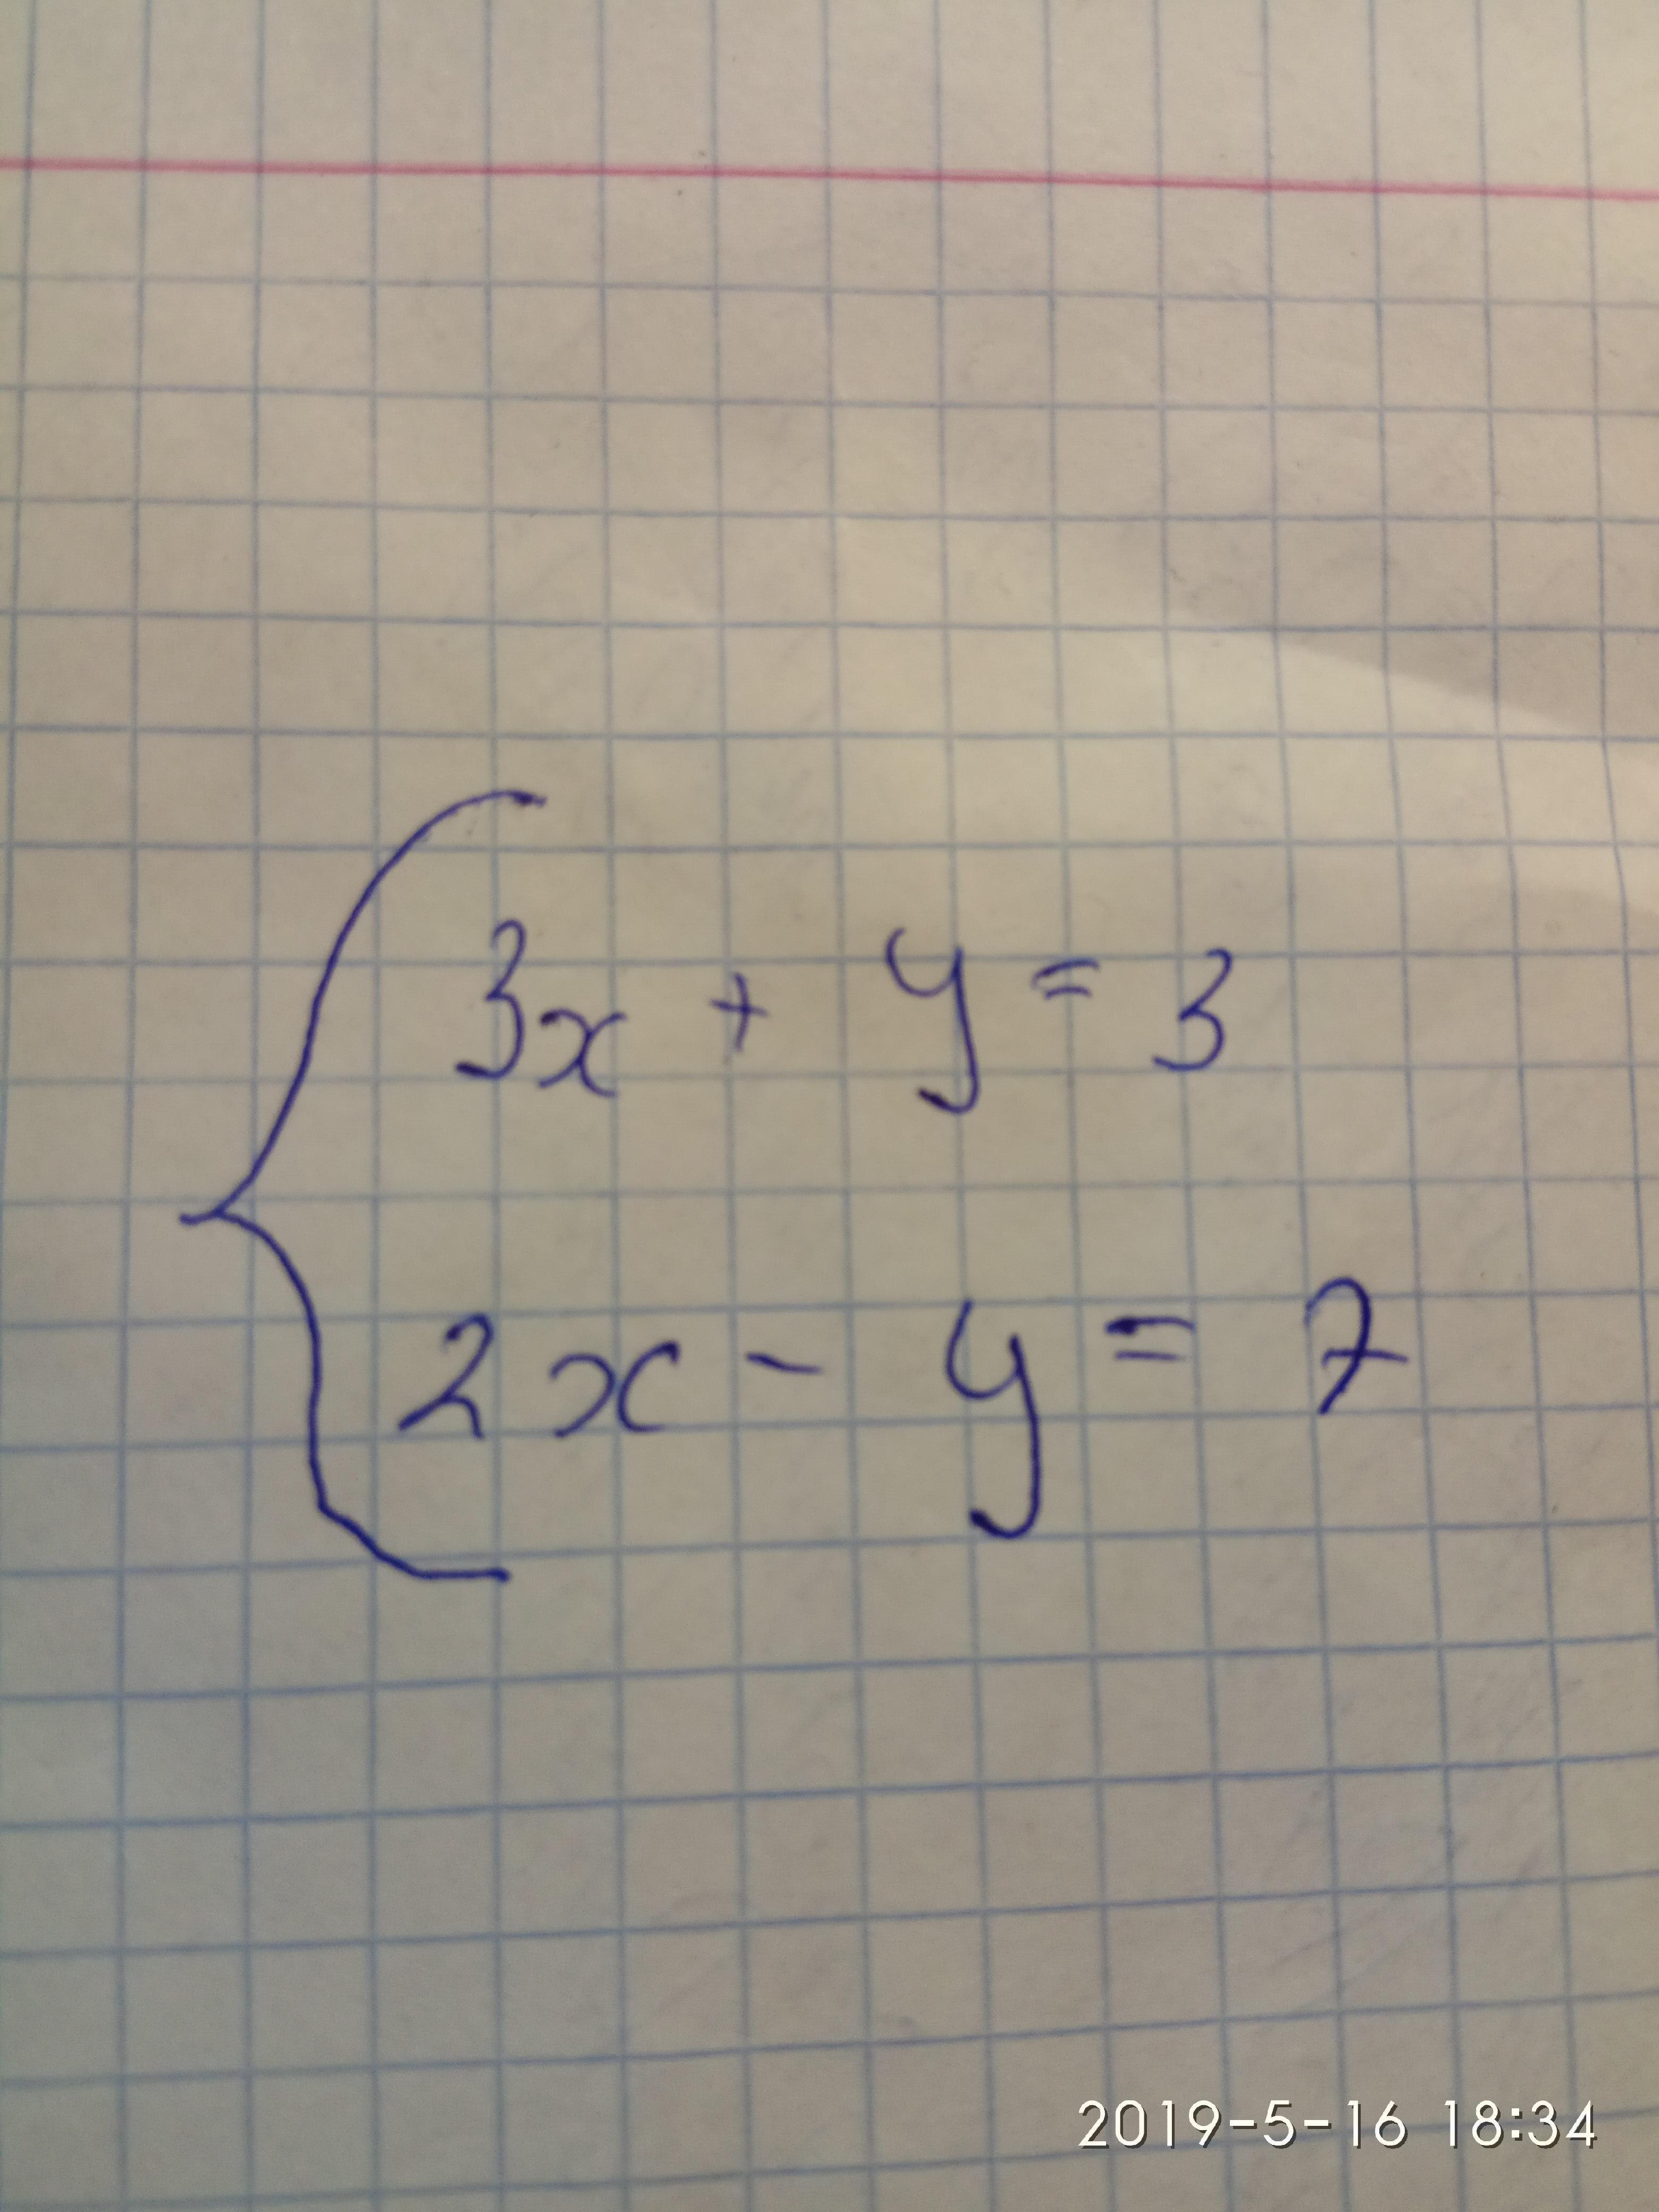 3x + y = 3
2x - y = 7
2019-5-16 18:34